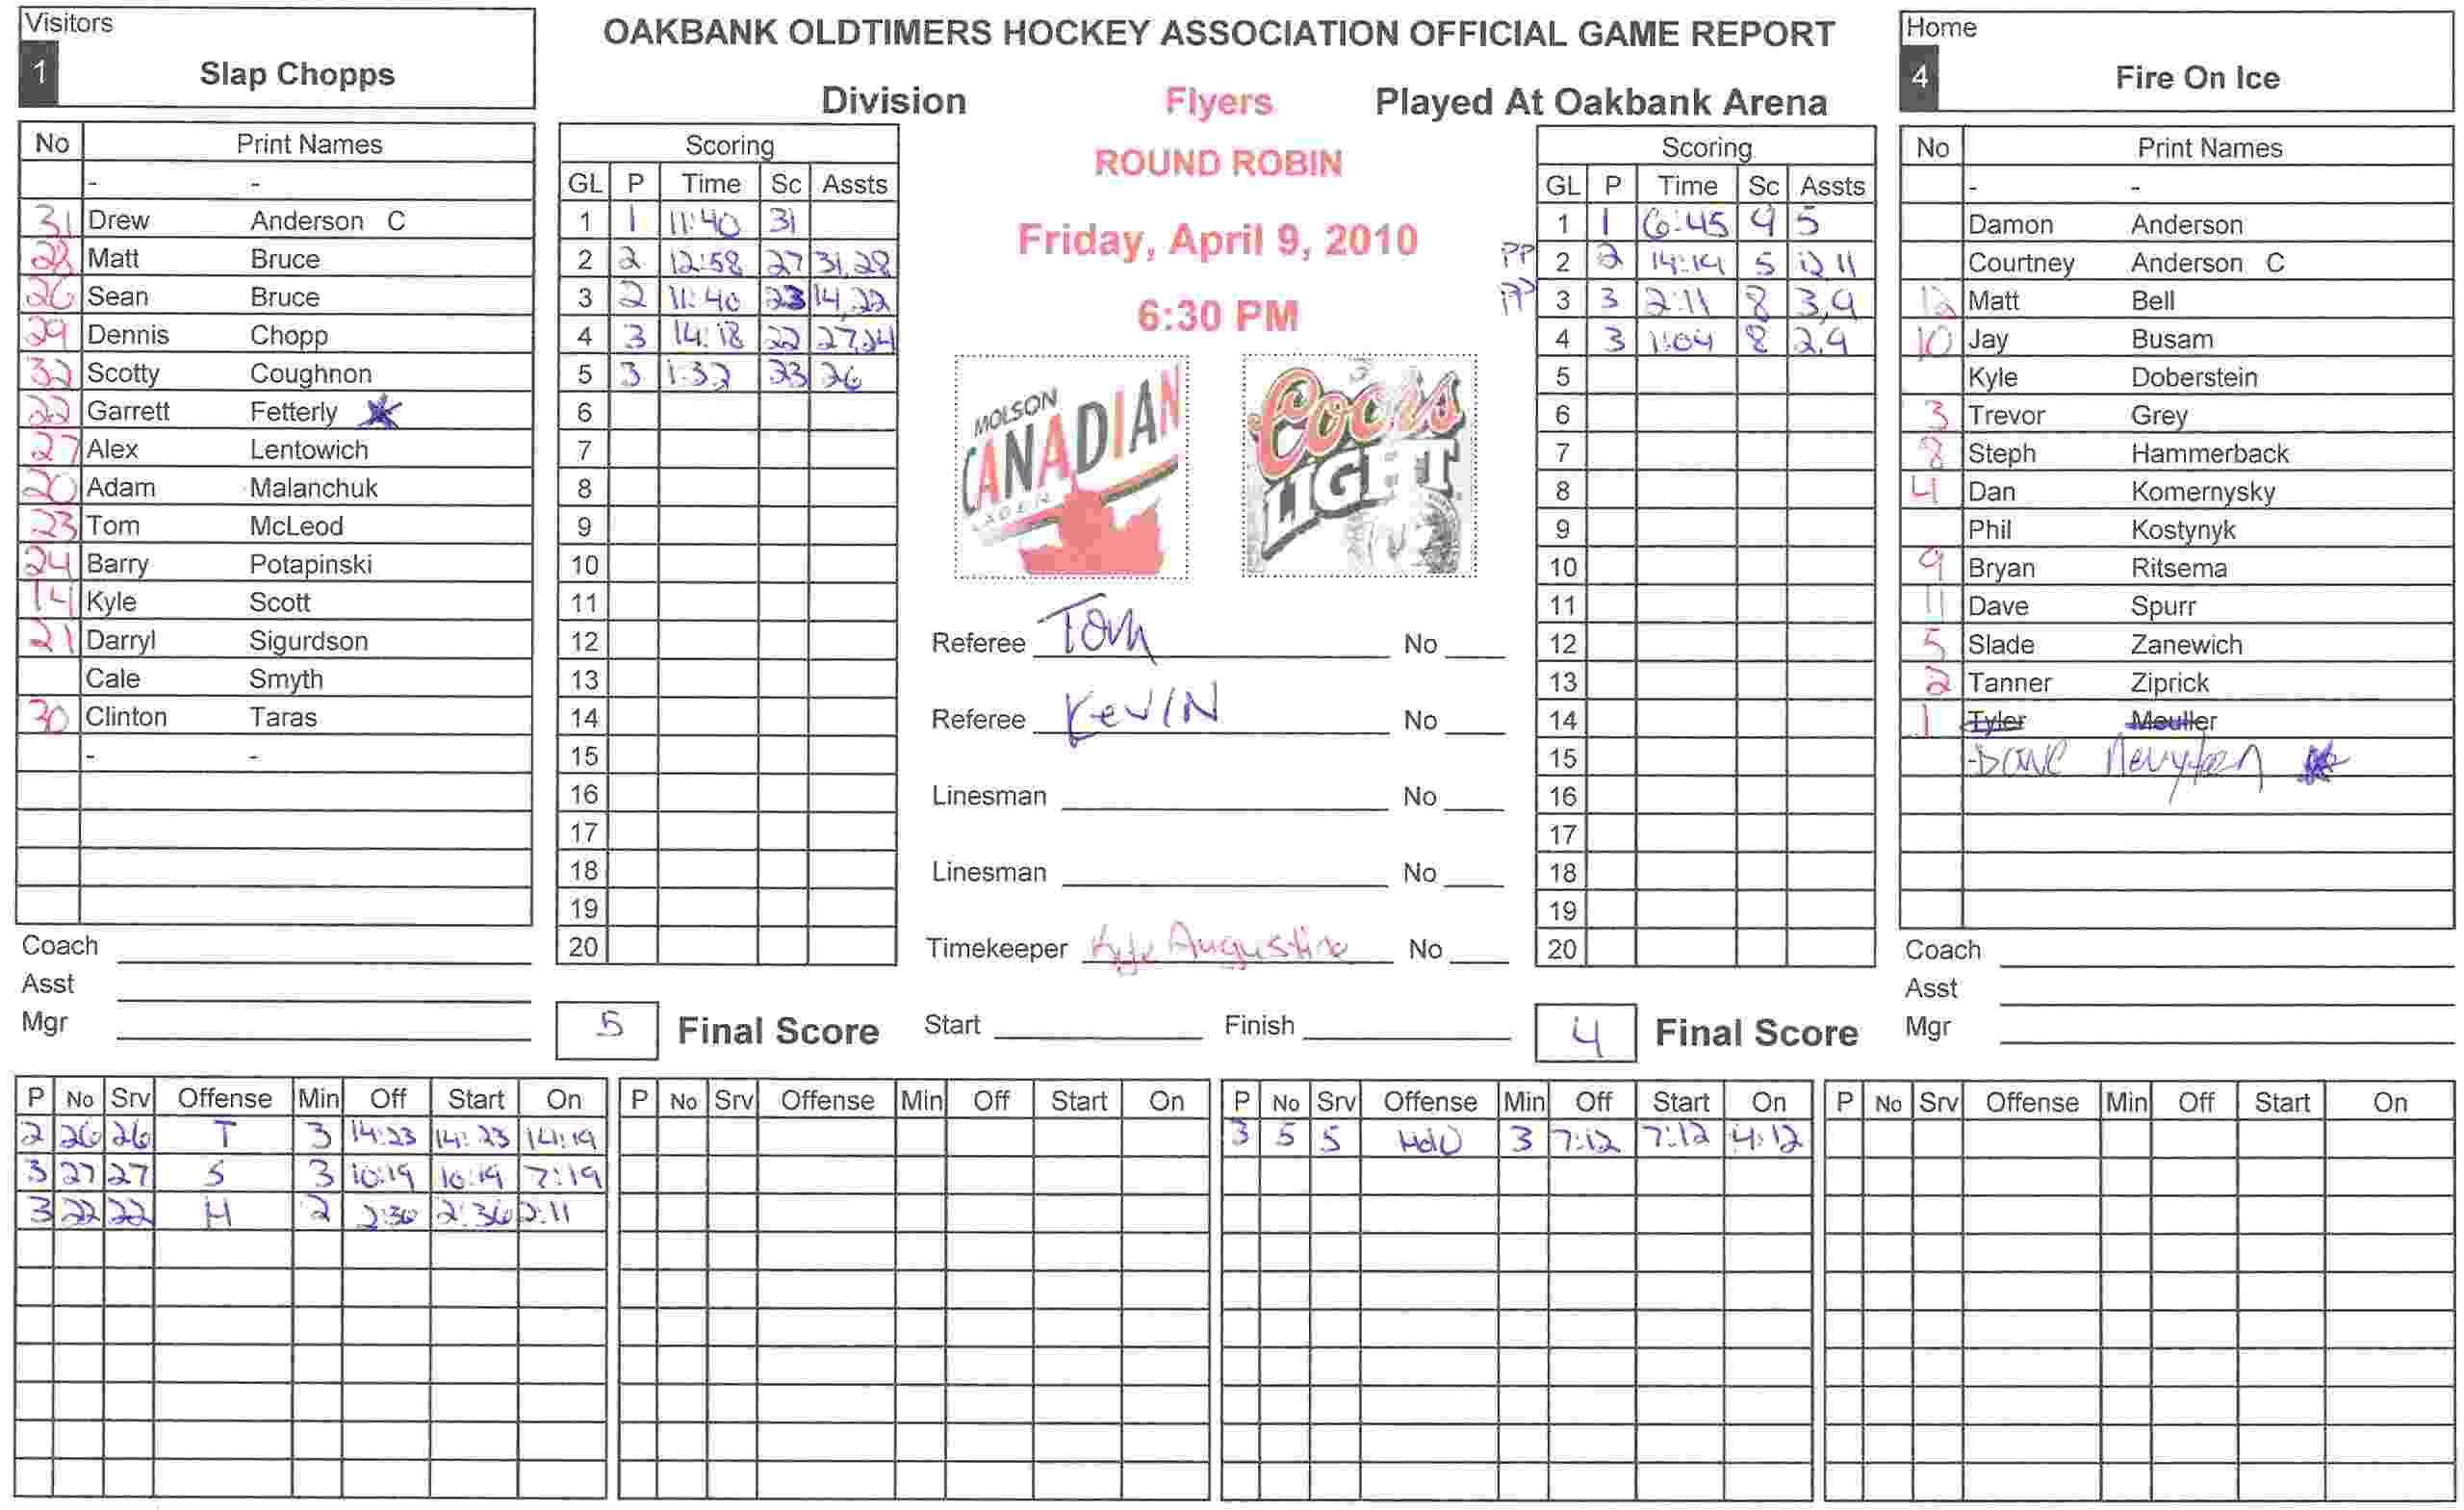 Visitors
1
Slap Chopps
OAKBANK OLDTIMERS HOCKEY ASSOCIATION OFFICIAL GAME REPORT
Division Flyers Played At Oakbank Arena
ROUND ROBIN
Friday, April 9, 2010
6:30 PM
Home
4
Fire On Ice
No Print Names
- -
31 Drew Anderson C
28 Matt Bruce
26 Sean Bruce
29 Dennis Chopp
32 Scotty Coughnon
22 Garrett Fetterly
27 Alex Lentowich
20 Adam Malanchuk
23 Tom McLeod
24 Barry Potapinski
14 Kyle Scott
21 Darryl Sigurdson
Cale Smyth
30 Clinton Taras
- -
Coach
Asst
Mgr
Scoring
GL P Time Sc Assts
1 1 11:40 31
2 2 12:58 27 31,28
3 2 11:40 23 14,22
4 3 14:18 22 27,24
5 3 1:32 23 26
6
7
8
9
10
11
12
13
14
15
16
17
18
19
20
MOLSON
CANADIAN
LAGER
Coors
LIGHT
Referee Tom No
Referee KevIN No
Linesman No
Linesman No
Timekeeper Kyle Augustine No
Scoring
GL P Time Sc Assts
1 1 6:45 9 5
PP 2 2 14:19 5 12 11
PP 3 3 2:11 8 3,9
4 3 1:04 8 2,9
5
6
7
8
9
10
11
12
13
14
15
16
17
18
19
20
No Print Names
- -
Damon Anderson
Courtney Anderson C
12 Matt Bell
10 Jay Busam
Kyle Doberstein
3 Trevor Grey
8 Steph Hammerback
4 Dan Komernysky
Phil Kostynyk
9 Bryan Ritsema
11 Dave Spurr
5 Slade Zanewich
2 Tanner Ziprick
1 Tyler Meuller
-
Coach
Asst
Mgr
5 Final Score Start Finish 4 Final Score
P No Srv Offense Min Off Start On
2 26 26 T 3 14:23 14:23 14:19
3 27 27 S 3 10:19 10:19 7:19
3 22 22 H 2 2:36 2:36 2:11
P No Srv Offense Min Off Start On
P No Srv Offense Min Off Start On
3 5 5 Hold 3 7:12 7:12 4:12
P No Srv Offense Min Off Start On